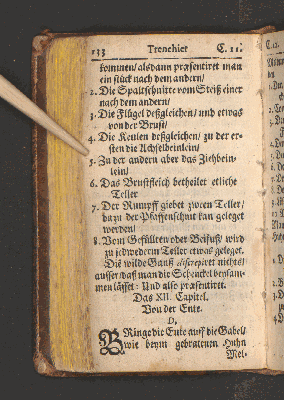 133 Trenchier C. 11.
kommen / alsdann præsentiret man
ein stück nach dem andern /
2. Die Spaltschnitte vom Steiß einer
nach dem andern /
3. Die Flügel deßgleichen / und etwas
von der Brust /
4. Die Keulen deßgleichen / zu der er-
sten die Achselbeinlein /
5. Zu der andern aber das Ziehbein-
lein /
6. Das Brustfleisch betheilet etliche
Teller
7. Der Rumpff giebet zween Teller /
dazu der Pfaffenschnit kan geleget
werden /
8. Vom Gefüllten oder Beifuß / wird
zu jedwederm Teller etwas geleget.
Die wilde Ganß discrepiret nichtes /
ausser daß man die Schenckel beysam-
men lässet: Und also præsentiret.
Das XII. Capitel.
Von der Ente.
D,
BRinge die Ente auff die Gabel /
wie beym gebratenen Huhn
Mel-